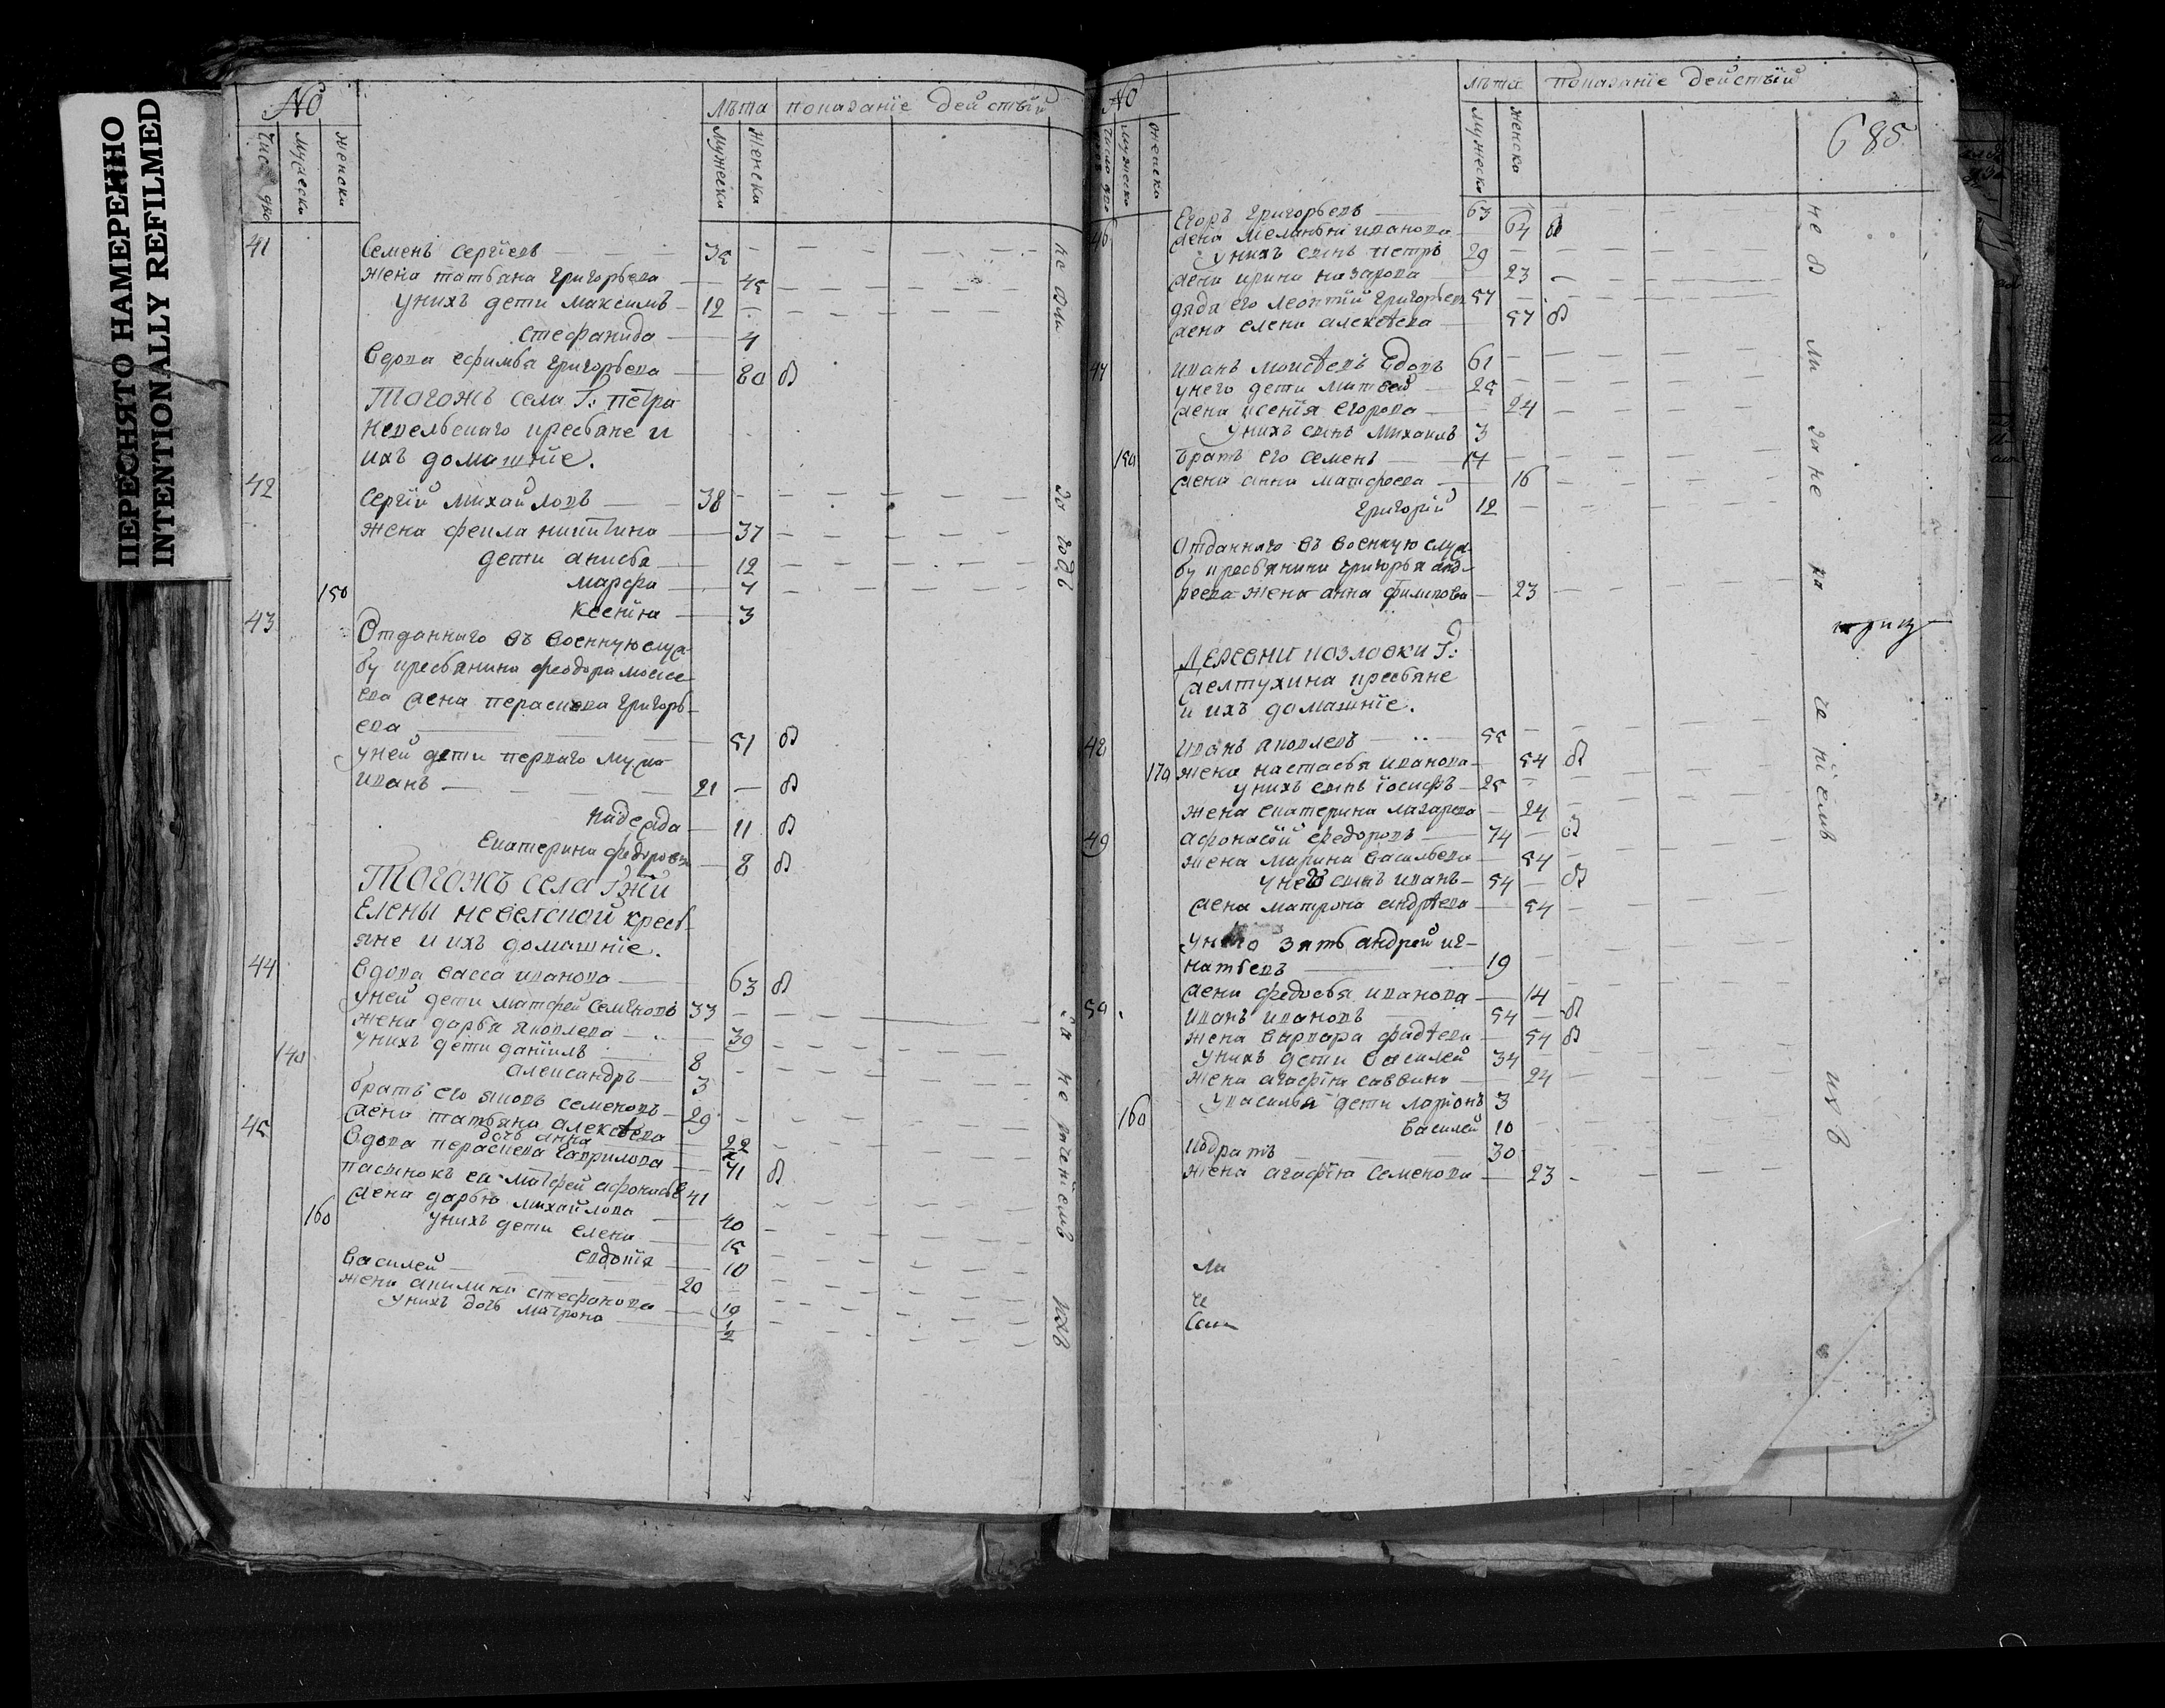 ПЕРЕСНЯТО НАМЕРЕННО
INTENTIONALLY REFILMED
№ лѣта показанїе действїй
Число дво мужески женски мужески женски
41 Семенъ Сергїевъ 35
жена татьяна григорьева 45
у нихъ дети максимъ 12
стефанида 4
вдова ефимья григорьева 80 в
Тогожъ села Г: петра
невельскаго кресьяне и
ихъ домашнїе.
42 Сергїй михайловъ 38
жена фекла никитина 37
дети анисья 12
марфа 7
150 ксенїя 3
43 Отданнаго въ военную служ
бу кресьянина феодора моисе
ева жена пераскева григорь
ева 51 в
у ней дети перваго мужа
иванъ 21 в
надежда 11 в
екатерина федоровы 8 в
Тогожъ села Гжи
елены невелской кресь
яне и ихъ домашнїе.
44 вдова васса иванова 63 в
у ней дети матфей семеновъ 33
жена дарья яковлева 39
140 у нихъ дети данїилъ 8
александръ 3
братъ его яковъ семеновъ 29
жена татьяна алексѣева 22
дочь анна
45 вдова пераскева гаврилова 71 в
пасынокъ ея матфей афонасье 41
жена дарья михайлова 40
160 у нихъ дети елена 15
евдокїя 10
василей 20
жена акилина стефанова 19
у нихъ дочь матрона 1/2
не были за не раченїемъ ихъ
№ лѣта показанїе действїй
число дво мужеско женско мужеско женско
685
46 Егоръ григорьевъ 63
жена меланья иванова 64 в
у нихъ сынъ петръ 29
жена ирина назарова 23
дядя его леонтїй григорьевъ 57
жена елена алексѣева 57 в
47 иванъ моисѣевъ вдовъ 61
у него дети матвей 25
жена ксенїя егорова 24
у нихъ сынъ михаилъ 3
150 братъ его семенъ 17
жена анна матфеева 16
григорїй 12
Отданнаго въ военную служ
бу кресьянина григорья анд
реева жена анна филипова 23
Деревни козловки Г:
желтухина кресьяне
и ихъ домашнїе.
48 иванъ яковлевъ 55
170 жена настасья иванова 54 в
у нихъ сынъ їосифъ 25
жена екатерина лазарева 24
49 афонасїй федоровъ 74 в
жена марина васильева 54
у него сынъ иванъ 54 в
жена матрона андрѣева 54
у него зять андрей иг
натьевъ 19
жена федосья иванова 14
50 иванъ ивановъ 54 в
жена варвара фадѣева 54 в
у нихъ дети василей 34
жена агафїя саввина 24
у василья дети ларїонъ 3
160 василей 10
кодратъ 30
жена агафїя семенова 23
не бы ли за не ра че нїемъ ихъ